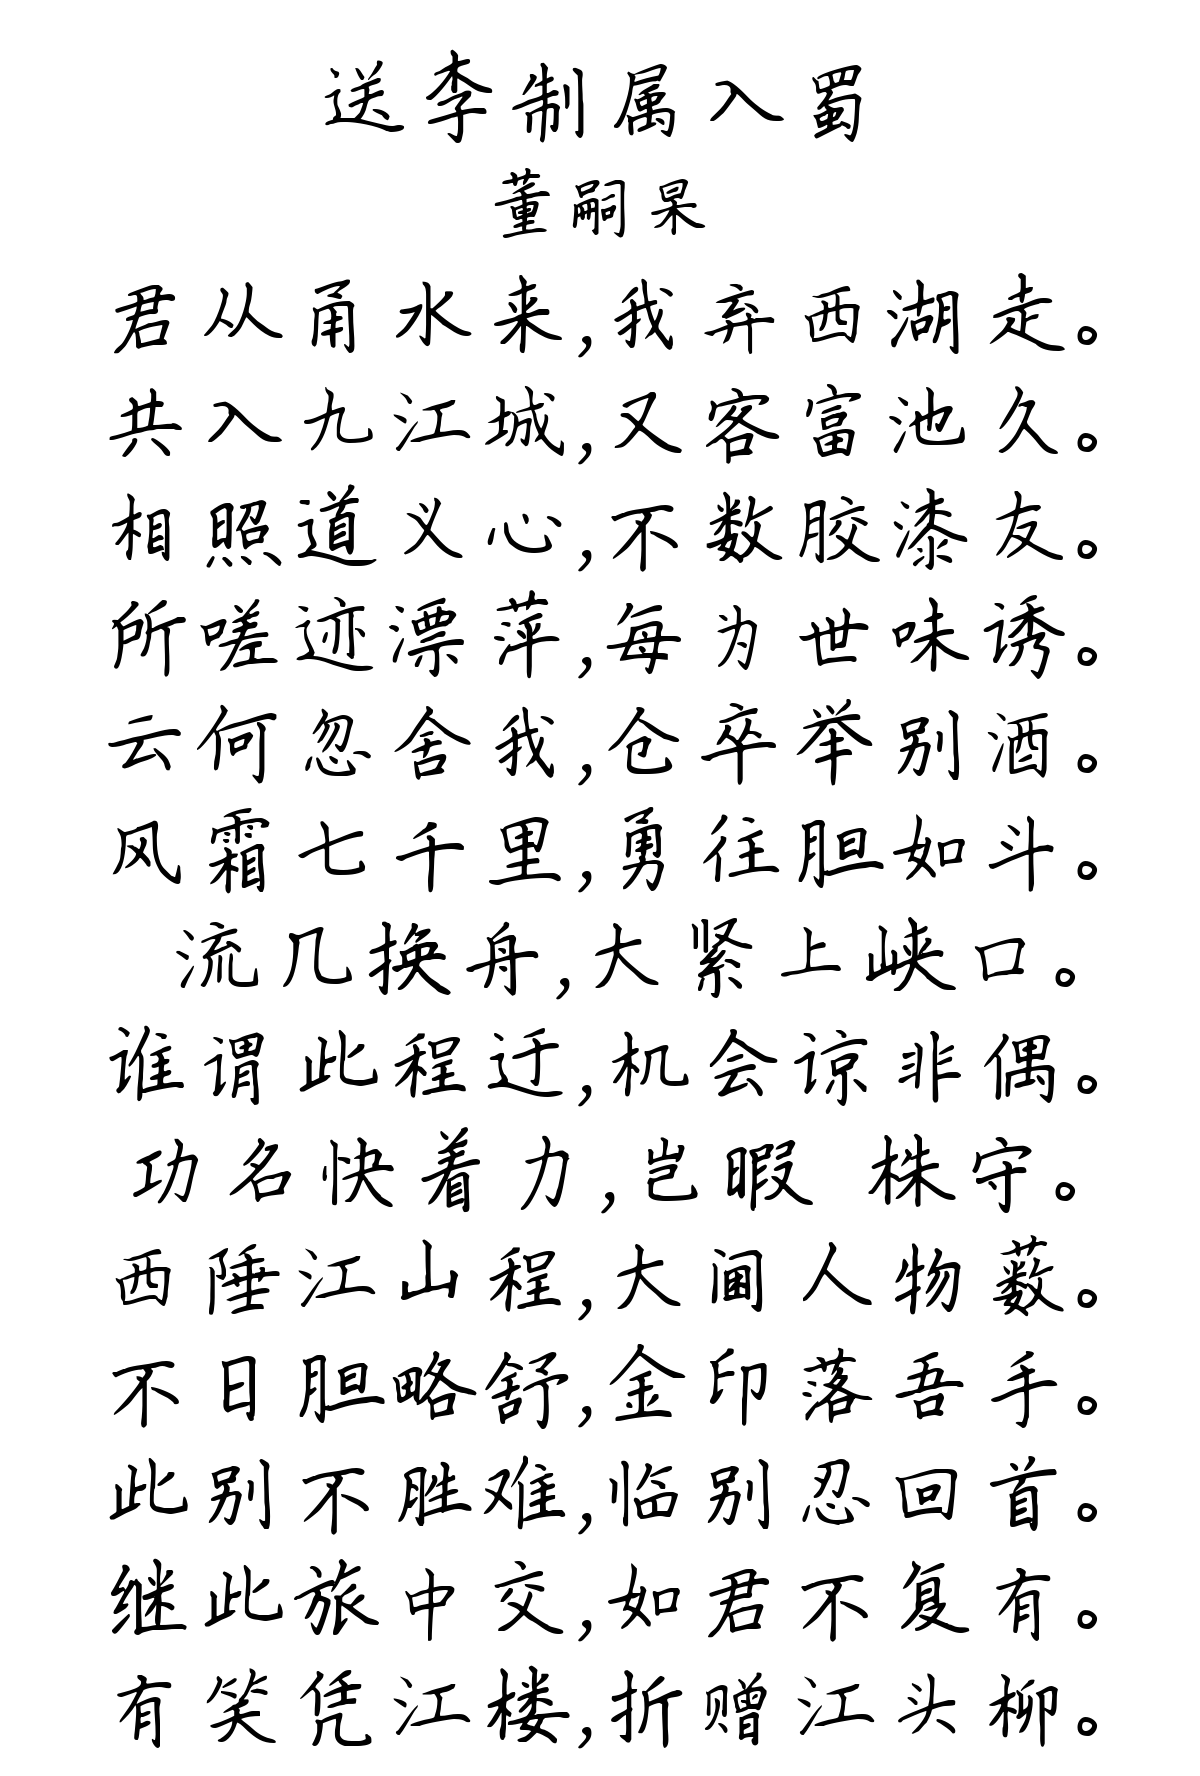 送李制属入蜀
董嗣杲
君从甬水来,我弃西湖走。
共入九江城,又客富池久。
相照道义心,不数胶漆友。
所嗟迹漂萍,每为世味诱。
云何忽舍我,仓卒举别酒。
风霜七千里,勇往胆如斗。
流几换舟,大紧上峡口。
谁谓此程迂,机会谅非偶。
功名快着力,岂暇 株守。
西陲江山程,大阃人物薮。
不日胆略舒,金印落吾手。
此别不胜难,临别忍回首。
继此旅中交,如君不复有。
有笑凭江楼,折赠江头柳。